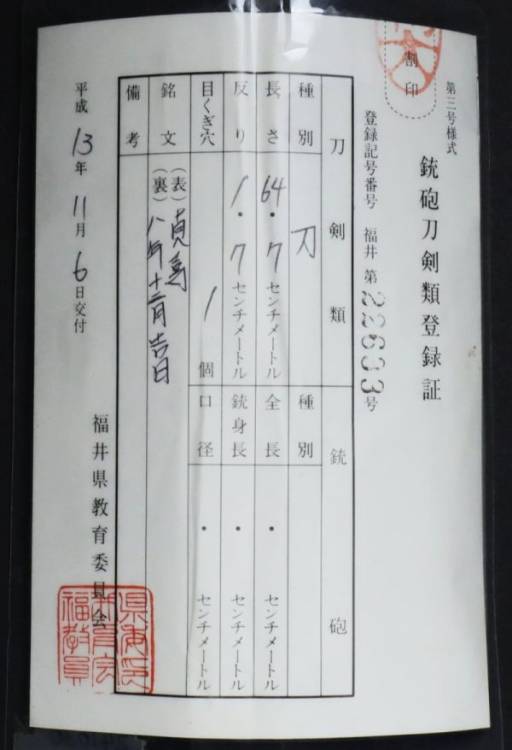 第三号様式
銃砲刀剣類登録証
割印
登録記号番号 福井 第22633号
刀剣類
銃砲
種別 刀
種別
長さ 64.7センチメートル
全長 ・ センチメートル
反り 1.7センチメートル
銃身長 ・ センチメートル
目くぎ穴 1個
口径 ・ センチメートル
銘文
(表)貞
(裏)八年十二月吉日
備考
平成13年11月6日交付
福井県教育委員会